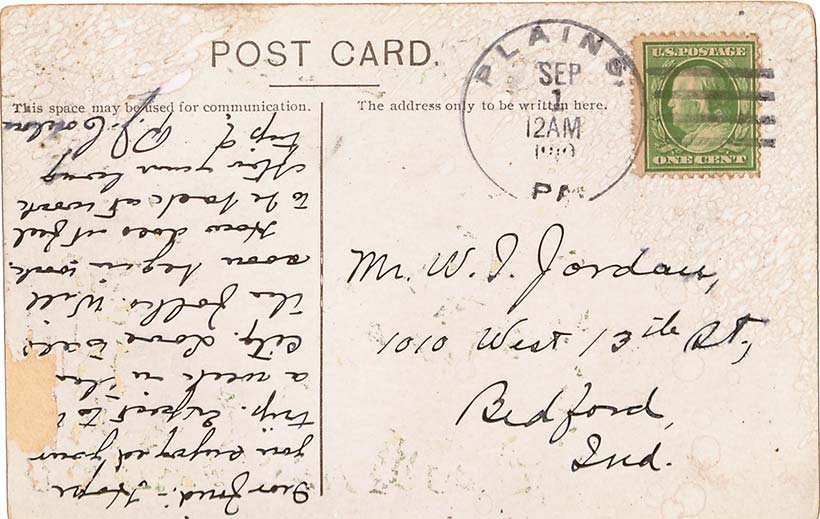 POST CARD.
This space may be used for communication.
The address only to be written here.
PLAINS,
SEP
1
12AM
PA
U.S.POSTAGE
ONE CENT
Mr. W. I. Jordan,
1010 West 13th St,
Bedford,
Ind.
Hope
you enjoyed your
trip. Expect to
a week in this
city. Love
the Will
soon begin work.
How does it feel
to be back at work
your long
trip?